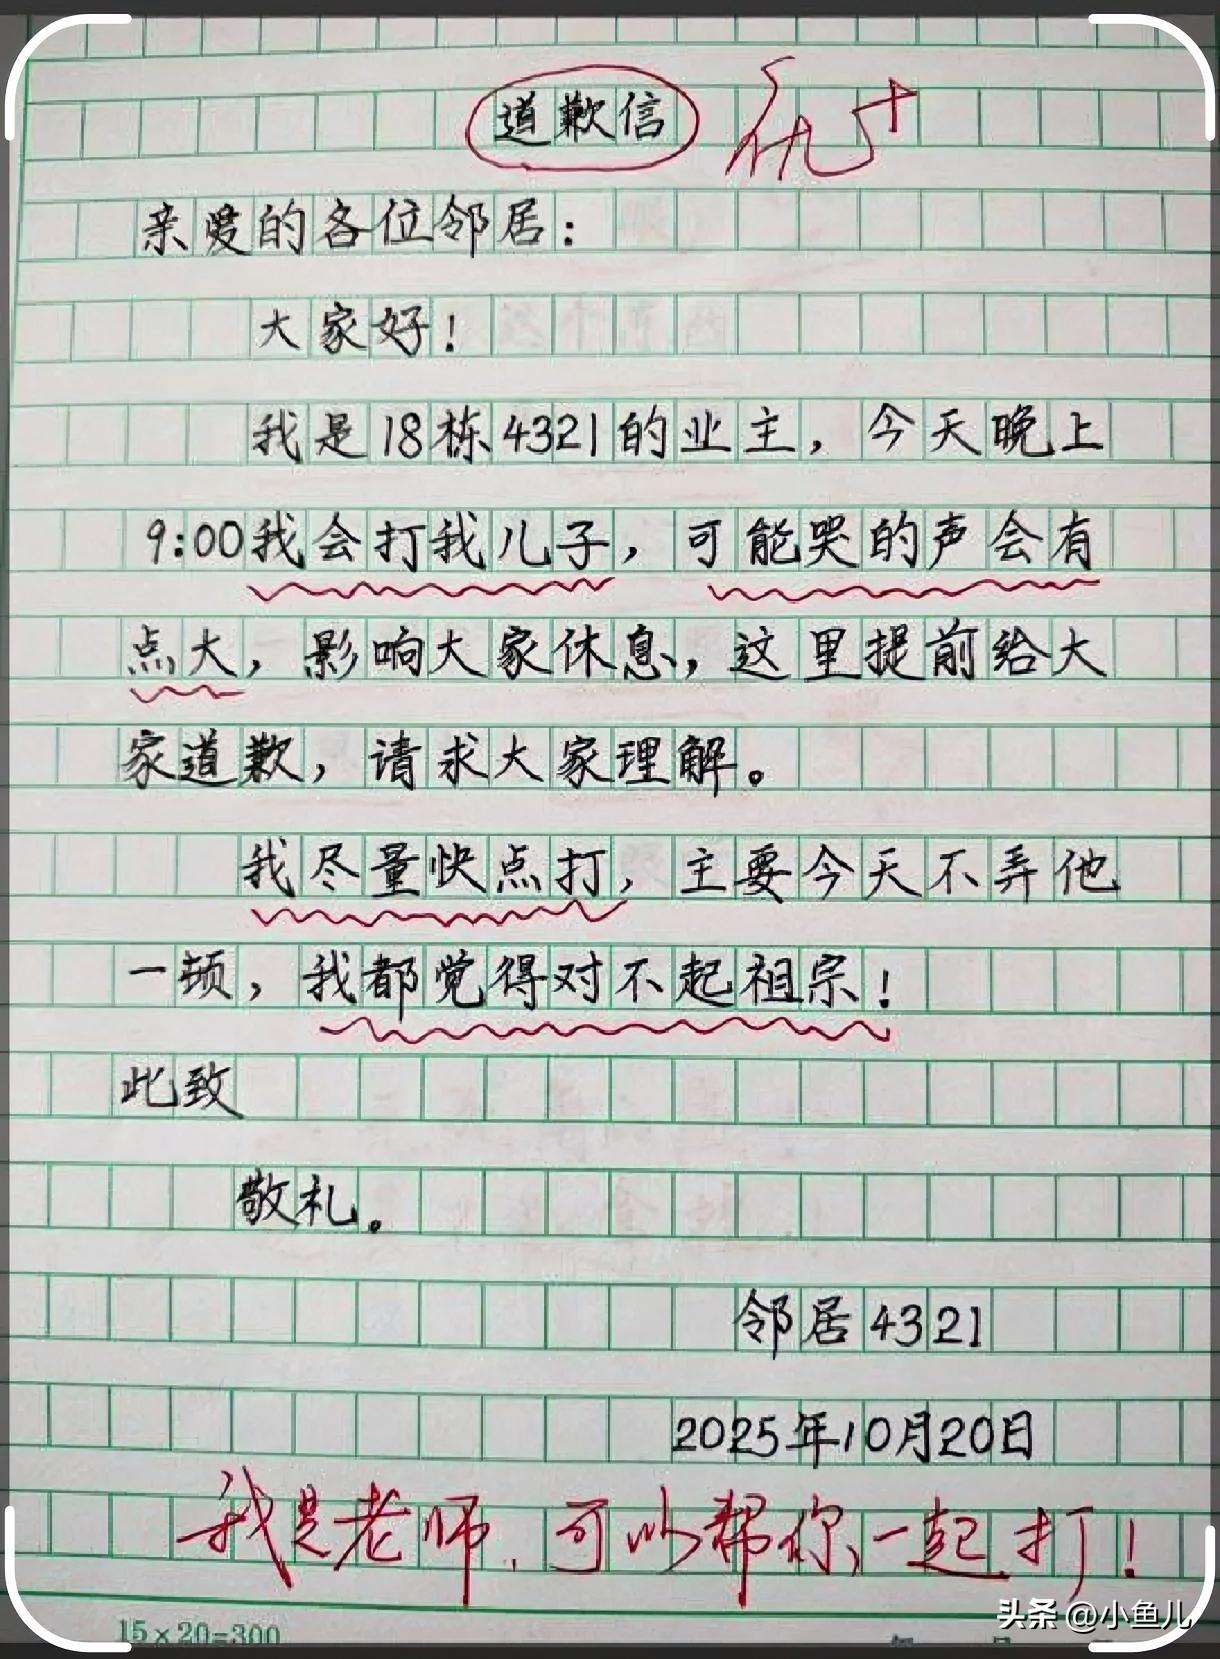 道歉信 优+
亲爱的各位邻居：
大家好！
我是18栋4321的业主，今天晚上
9:00我会打我儿子，可能哭的声会有
点大，影响大家休息，这里提前给大
家道歉，请求大家理解。
我尽量快点打，主要今天不弄他
一顿，我都觉得对不起祖宗！
此致
敬礼。
邻居4321
2025年10月20日
我是老师，可以帮你一起打！
头条 @小鱼儿
15×20=300